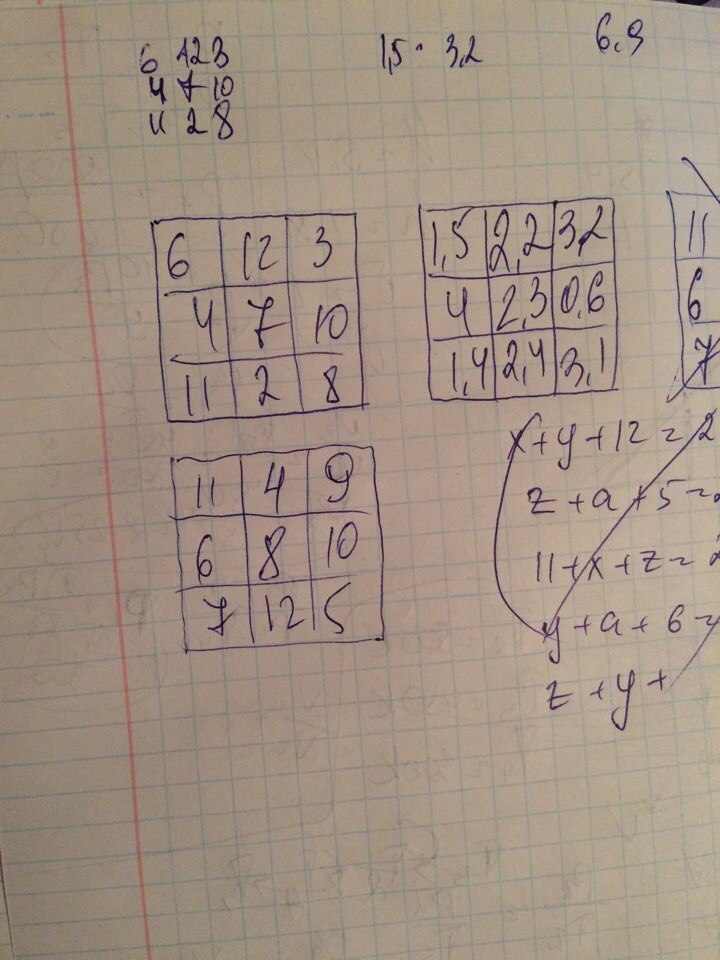 6 12 3
4 7 10
11 2 8
1,5 · 3,2
6,9
6 12 3
4 7 10
11 2 8
1,5 2,2 3,2
4 2,3 0,6
1,4 2,4 3,1
11
6
7
11 4 9
6 8 10
7 12 5
x+y+12=2
z+a+5=
11+x+z=2
y+a+6=
z+y+